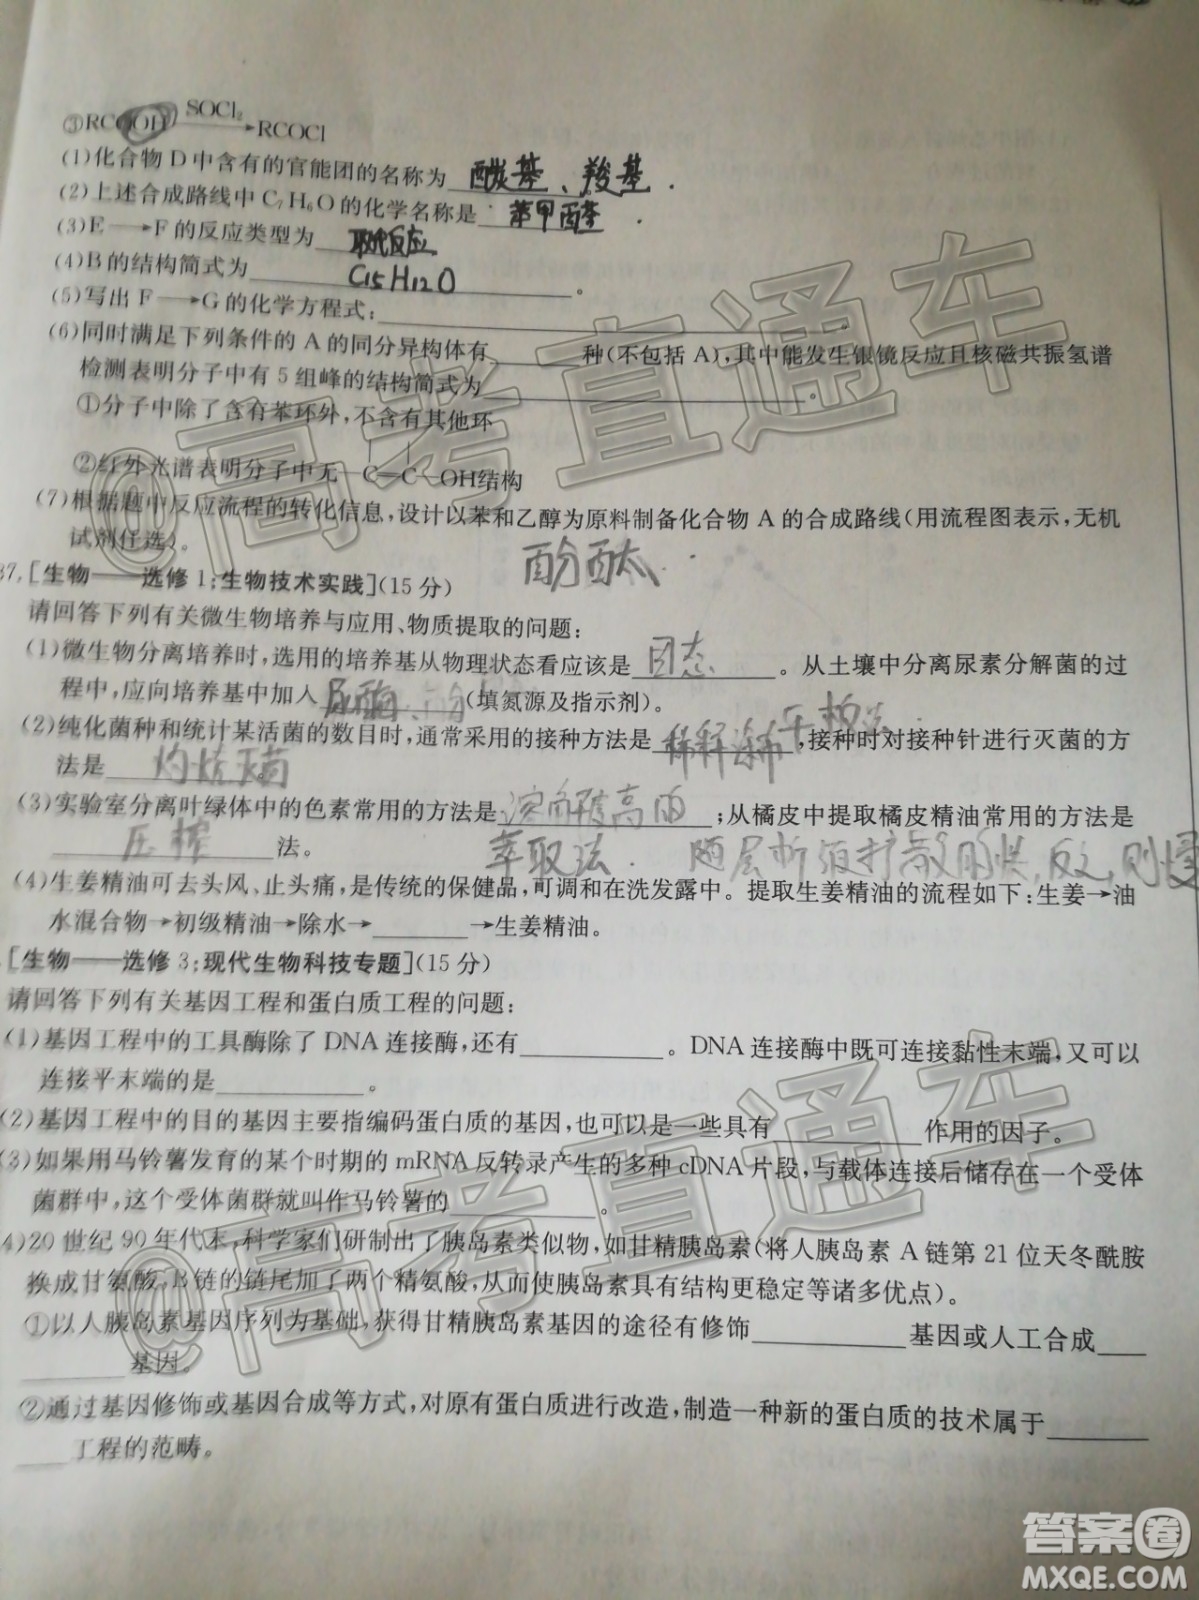 ③RCOOH SOCl₂ → RCOCl
(1)化合物 D 中含有的官能团的名称为 羰基、羧基.
(2)上述合成路线中 C₇H₆O 的化学名称是 苯甲醛
(3)E→F 的反应类型为 取代反应
(4)B 的结构简式为 C15H12O 。
(5)写出 F→G 的化学方程式:
(6)同时满足下列条件的 A 的同分异构体有 种(不包括 A),其中能发生银镜反应且核磁共振氢谱
检测表明分子中有 5 组峰的结构简式为 。
①分子中除了含有苯环外,不含有其他环
②红外光谱表明分子中无 —C—C—OH结构
(7)根据题中反应流程的转化信息,设计以苯和乙醇为原料制备化合物 A 的合成路线(用流程图表示,无机
试剂任选)。
酚酞.
37.[生物——选修 1:生物技术实践](15 分)
请回答下列有关微生物培养与应用、物质提取的问题:
(1)微生物分离培养时,选用的培养基从物理状态看应该是 固态 。从土壤中分离尿素分解菌的过
程中,应向培养基中加入 (填氮源及指示剂)。
(2)纯化菌种和统计某活菌的数目时,通常采用的接种方法是 稀释涂布平板法 ,接种时对接种针进行灭菌的方
法是 灼烧灭菌
(3)实验室分离叶绿体中的色素常用的方法是 溶解度高的 ;从橘皮中提取橘皮精油常用的方法是
压榨 法。 萃取法. 随层析液扩散的快,反之,则慢
(4)生姜精油可去头风、止头痛,是传统的保健品,可调和在洗发露中。提取生姜精油的流程如下:生姜→油
水混合物→初级精油→除水→ →生姜精油。
[生物——选修 3:现代生物科技专题](15 分)
请回答下列有关基因工程和蛋白质工程的问题:
(1)基因工程中的工具酶除了 DNA 连接酶,还有 。DNA 连接酶中既可连接黏性末端,又可以
连接平末端的是 。
(2)基因工程中的目的基因主要指编码蛋白质的基因,也可以是一些具有 作用的因子。
(3)如果用马铃薯发育的某个时期的 mRNA 反转录产生的多种 cDNA 片段,与载体连接后储存在一个受体
菌群中,这个受体菌群就叫作马铃薯的 。
4)20 世纪 90 年代末,科学家们研制出了胰岛素类似物,如甘精胰岛素(将人胰岛素 A 链第 21 位天冬酰胺
换成甘氨酸,B 链的链尾加了两个精氨酸,从而使胰岛素具有结构更稳定等诸多优点)。
①以人胰岛素基因序列为基础,获得甘精胰岛素基因的途径有修饰 基因或人工合成
基因。
②通过基因修饰或基因合成等方式,对原有蛋白质进行改造,制造一种新的蛋白质的技术属于
工程的范畴。
@高考直通车
@高考直通车
答案圈
MXQE.COM